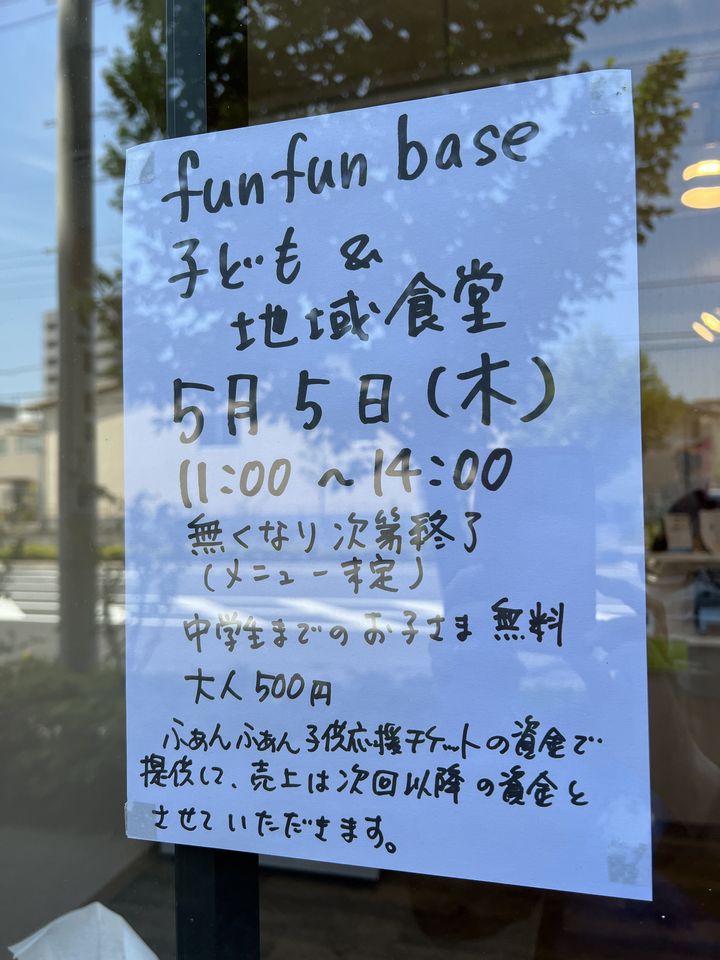 funfun base
子ども &
地域食堂
5月5日(木)
11:00 ~ 14:00
無くなり次第終了
(メニュー未定)
中学生までのお子さま 無料
大人 500円
ふぁんふぁん子供応援チケットの資金で
提供して、売上は次回以降の資金と
させていただきます。